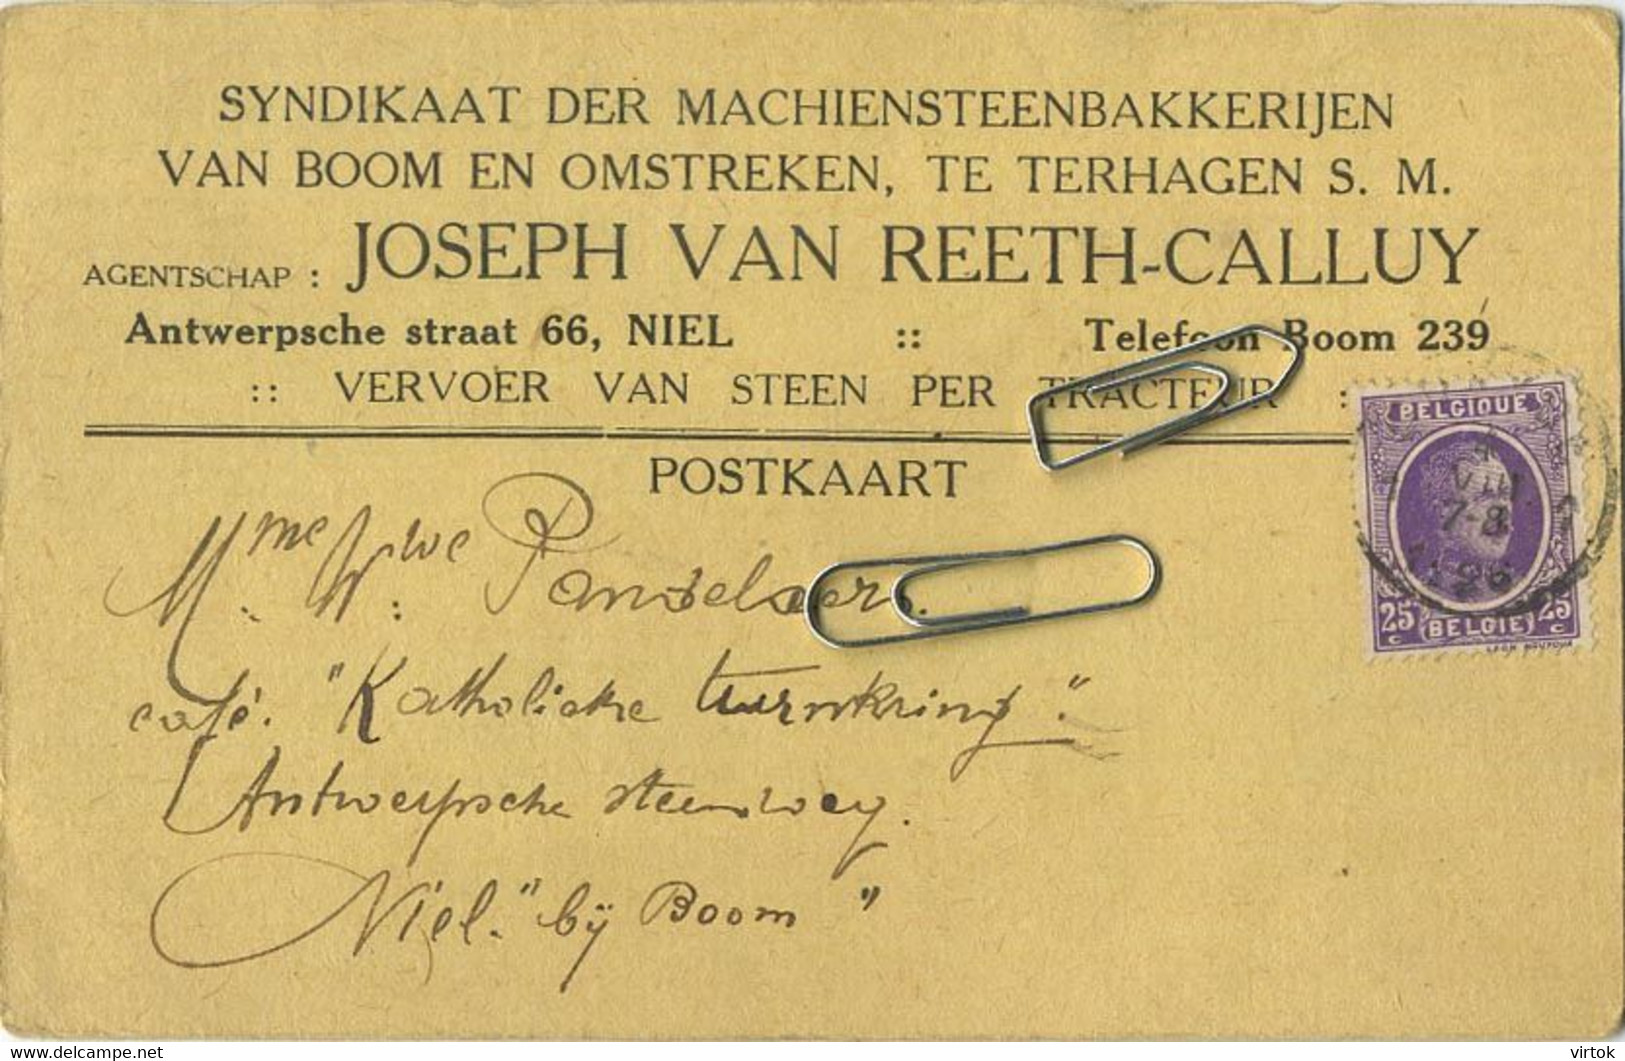 SYNDIKAAT DER MACHIENSTEENBAKKERIJEN
VAN BOOM EN OMSTREKEN, TE TERHAGEN S. M.
AGENTSCHAP : JOSEPH VAN REETH-CALLUY
Antwerpsche straat 66, NIEL :: Telefoon Boom 239
:: VERVOER VAN STEEN PER TRACTEUR :
POSTKAART
BELGIQUE
VIII
7-8
25 c BELGIË 25 c
Mme Wwe Pandelaers.
café. "Katholieke turnkring".
Antwerpsche steenweg.
Niel. "bij Boom"
www.delcampe.net
virtok